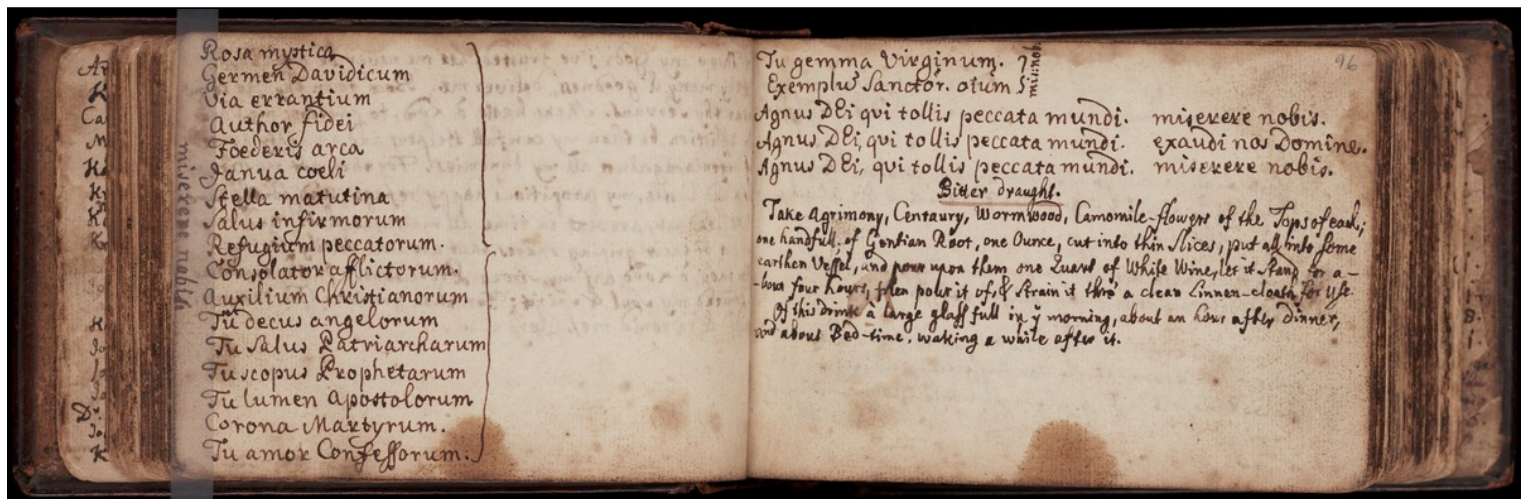 Rosa mystica
Germen Davidicum
Via errantium
Author fidei
Foederis arca
Janua coeli
Stella matutina
Salus infirmorum
Refugium peccatorum.
Consolator afflictorum.
Auxilium Christianorum
Tu decus angelorum
Tu Salus Patriarcharum
Tu scopus Prophetarum
Tu lumen Apostolorum
Corona Martyrum.
Tu amor Confessorum.
miserere nobis
96
Tu gemma Virginum.
Exemplū Sanctor. oium
mis: nob.
Agnus DEi qui tollis peccata mundi. miserere nobis.
Agnus DEi, qui tollis peccata mundi. exaudi nos Domine.
Agnus DEi, qui tollis peccata mundi. miserere nobis.
Bitter draught.
Take Agrimony, Centaury, Wormwood, Camomile-flowers of the Tops of each,
one handfull, of Gentian Root, one Ounce, cut into thin Slices, put all into some
earthen Vessel, and pour upon them one Quart of White Wine, let it stand for a-
-bout four hours, then pour it of, & strain it thro' a clean Linnen-cloath for use.
Of this drink a large glass full in y morning, about an hour after dinner,
and about Bed-time. waking a while after it.